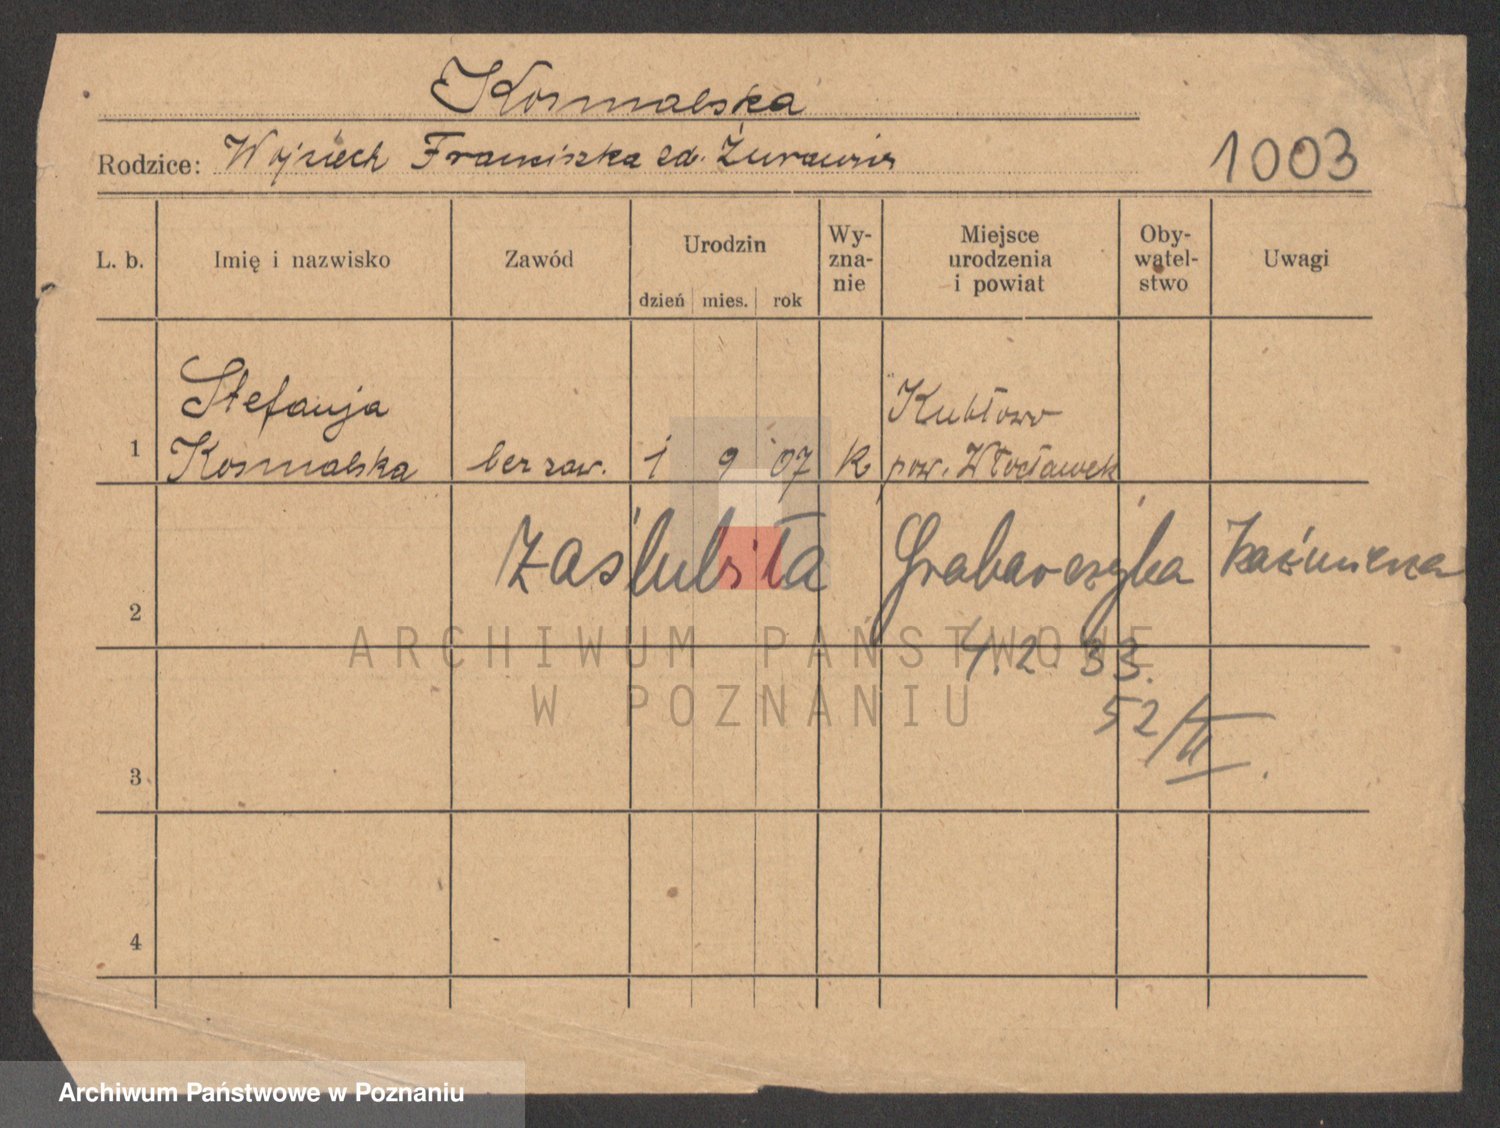 Kosmalska
Rodzice: Wojciech Franciszka zd. Żurawin
1003
L. b. Imię i nazwisko Zawód Urodzin dzień mies. rok Wy-zna-nie Miejsce urodzenia i powiat Oby-watel-stwo Uwagi
Stefanja Kubłowo
1 Kosmalska bez zaw. 1 9 07 k pow. Włocławek
zaślubiła Grabarczyka Kaźmierza
2
4. 2. 33.
52/II.
3
4
ARCHIWUM PAŃSTWOWE
W POZNANIU
Archiwum Państwowe w Poznaniu